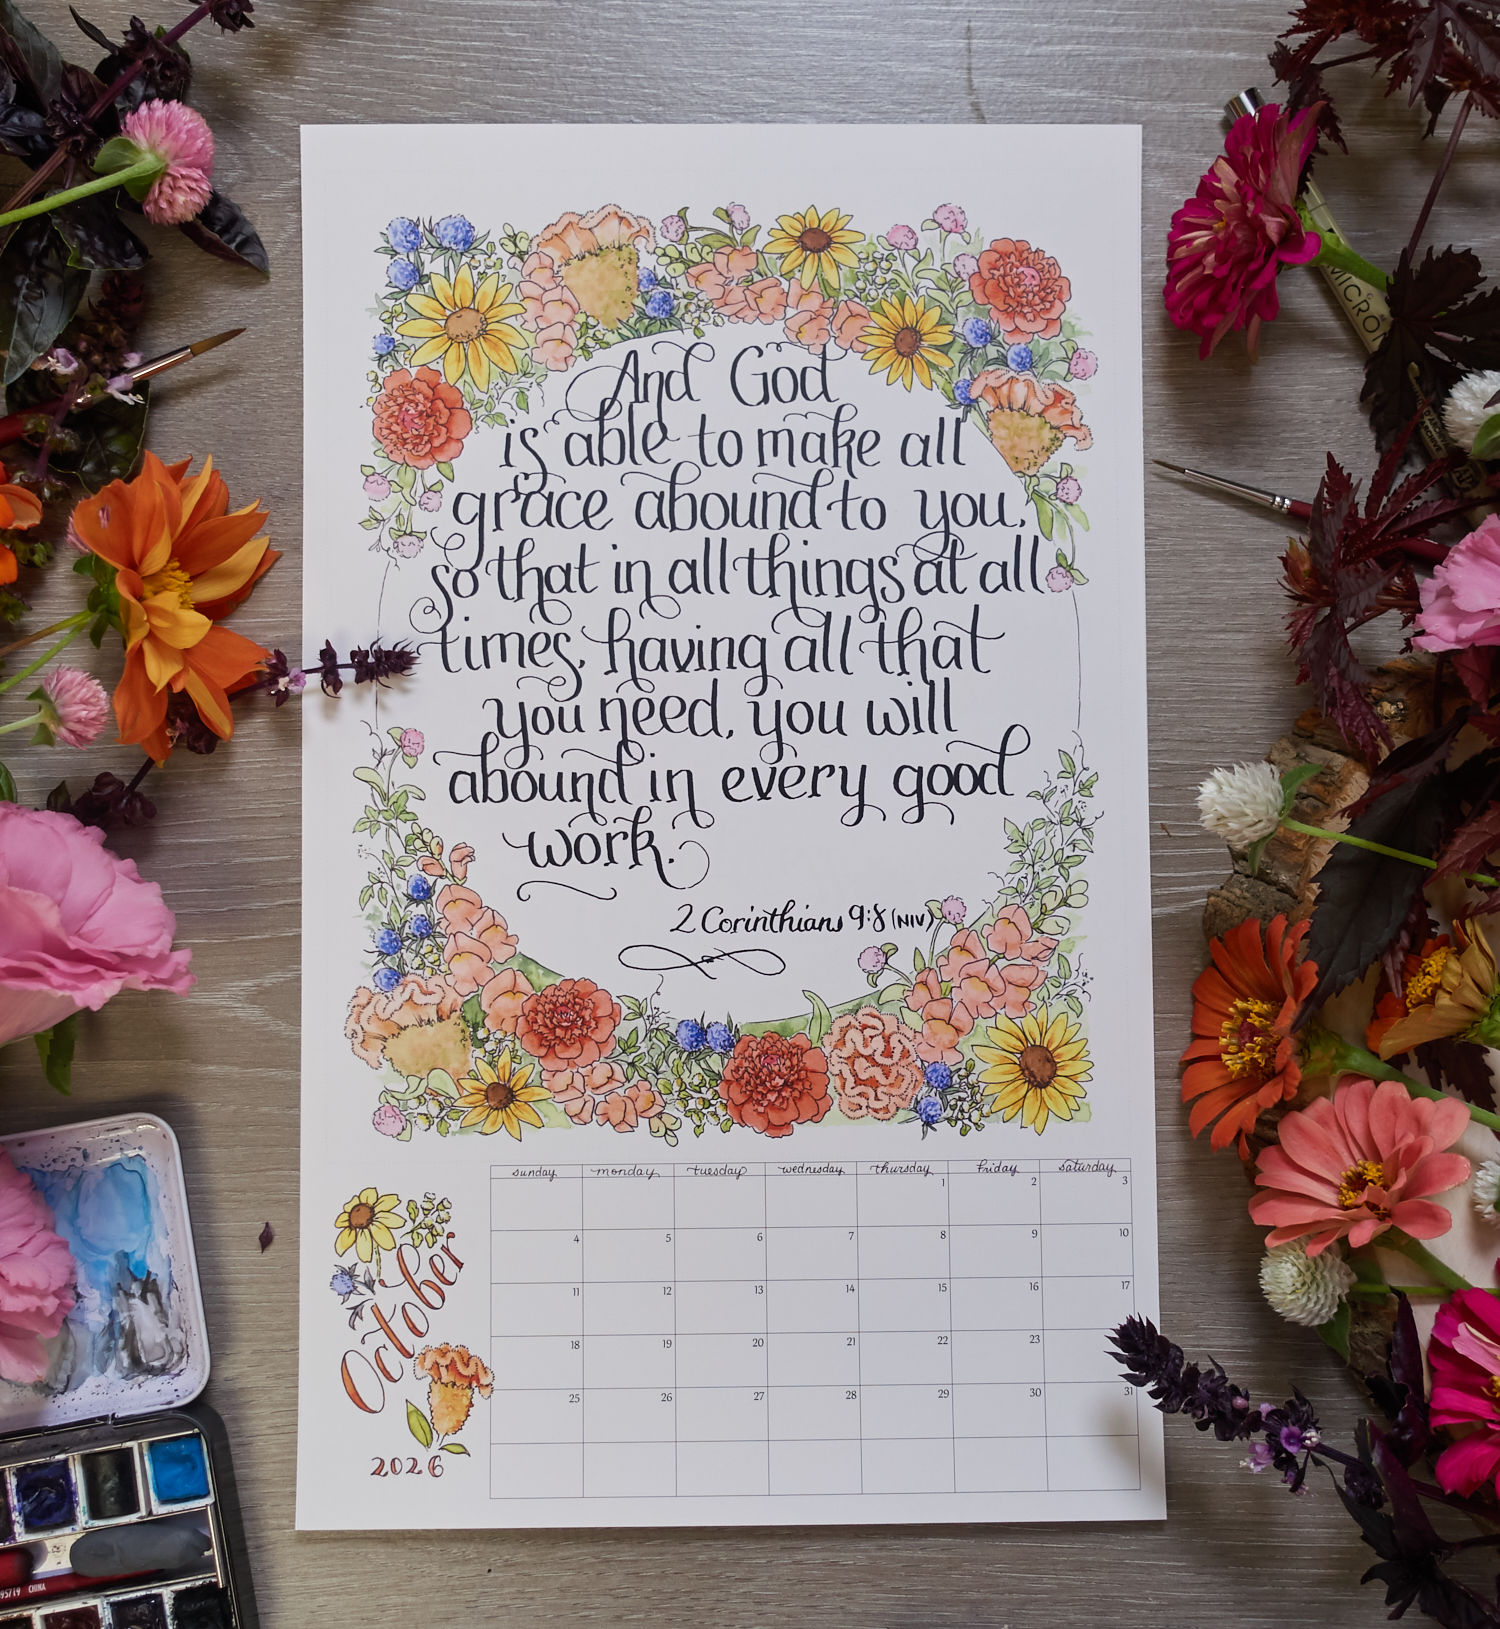 And God
is able to make all
grace abound to you,
so that in all things at all
times, having all that
you need, you will
abound in every good
work.
2 Corinthians 9:8 (NIV)
October
2026
sunday monday tuesday wednesday thursday friday saturday
1 2 3
4 5 6 7 8 9 10
11 12 13 14 15 16 17
18 19 20 21 22 23
25 26 27 28 29 30 31
MICRON
CHINA